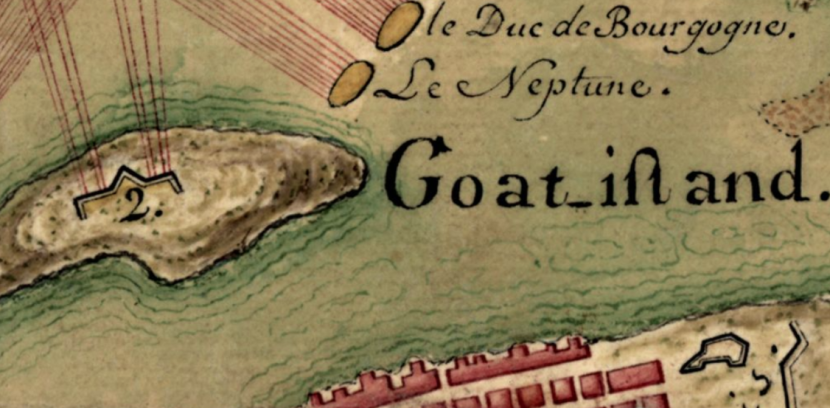 le Duc de Bourgogne.
Le Neptune.
Goat-iſland.
2.
5.